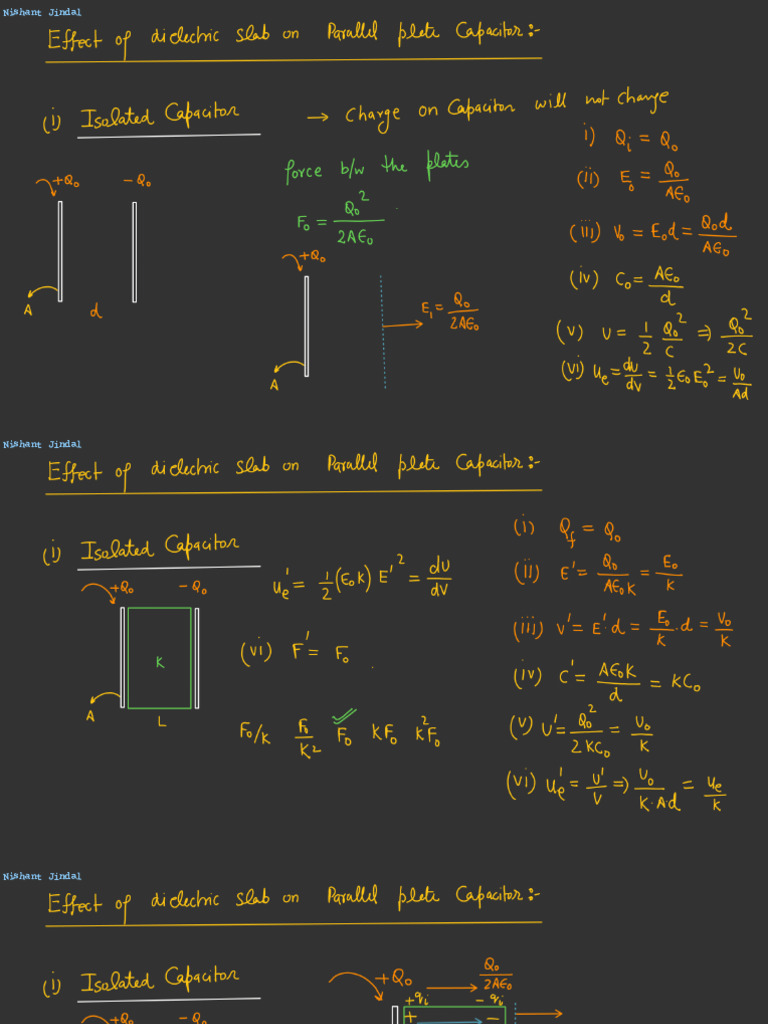 Nishant Jindal
Effect of dielectric slab on Parallel plate Capacitor:-
(i) Isolated Capacitor → Charge on Capacitor will not change
+Q₀ -Q₀
A d
force b/w the plates
F₀ = Q₀²/2Aϵ₀
+Q₀
E₁ = Q₀/2Aϵ₀
A
i) Qᵢ = Q₀
(ii) E₀ = Q₀/Aϵ₀
(iii) V₀ = E₀d = Q₀d/Aϵ₀
(iv) C₀ = Aϵ₀/d
(v) U = 1/2 Q₀²/C ⇒ Q₀²/2C
(vi) uₑ = dU/dV = 1/2 ϵ₀E₀² = U₀/Ad
Nishant Jindal
Effect of dielectric slab on Parallel plate Capacitor:-
(i) Isolated Capacitor
+Q₀ -Q₀
K
A L
uₑ' = 1/2 (ϵ₀K) E'² = dU/dV
(vi) F' = F₀
F₀/K F₀/K² F₀ KF₀ K²F₀
(i) Q_f = Q₀
(ii) E' = Q₀/Aϵ₀K = E₀/K
(iii) V' = E'·d = E₀/K·d = V₀/K
(iv) C' = Aϵ₀K/d = KC₀
(v) U' = Q₀²/2KC₀ = U₀/K
(vi) uₑ' = U'/V ⇒ U₀/K·Ad = uₑ/K
Nishant Jindal
Effect of dielectric slab on Parallel plate Capacitor:-
(i) Isolated Capacitor
+Q₀ Q₀/2Aϵ₀
+qᵢ -qᵢ
+ -
+Q₀ -Q₀